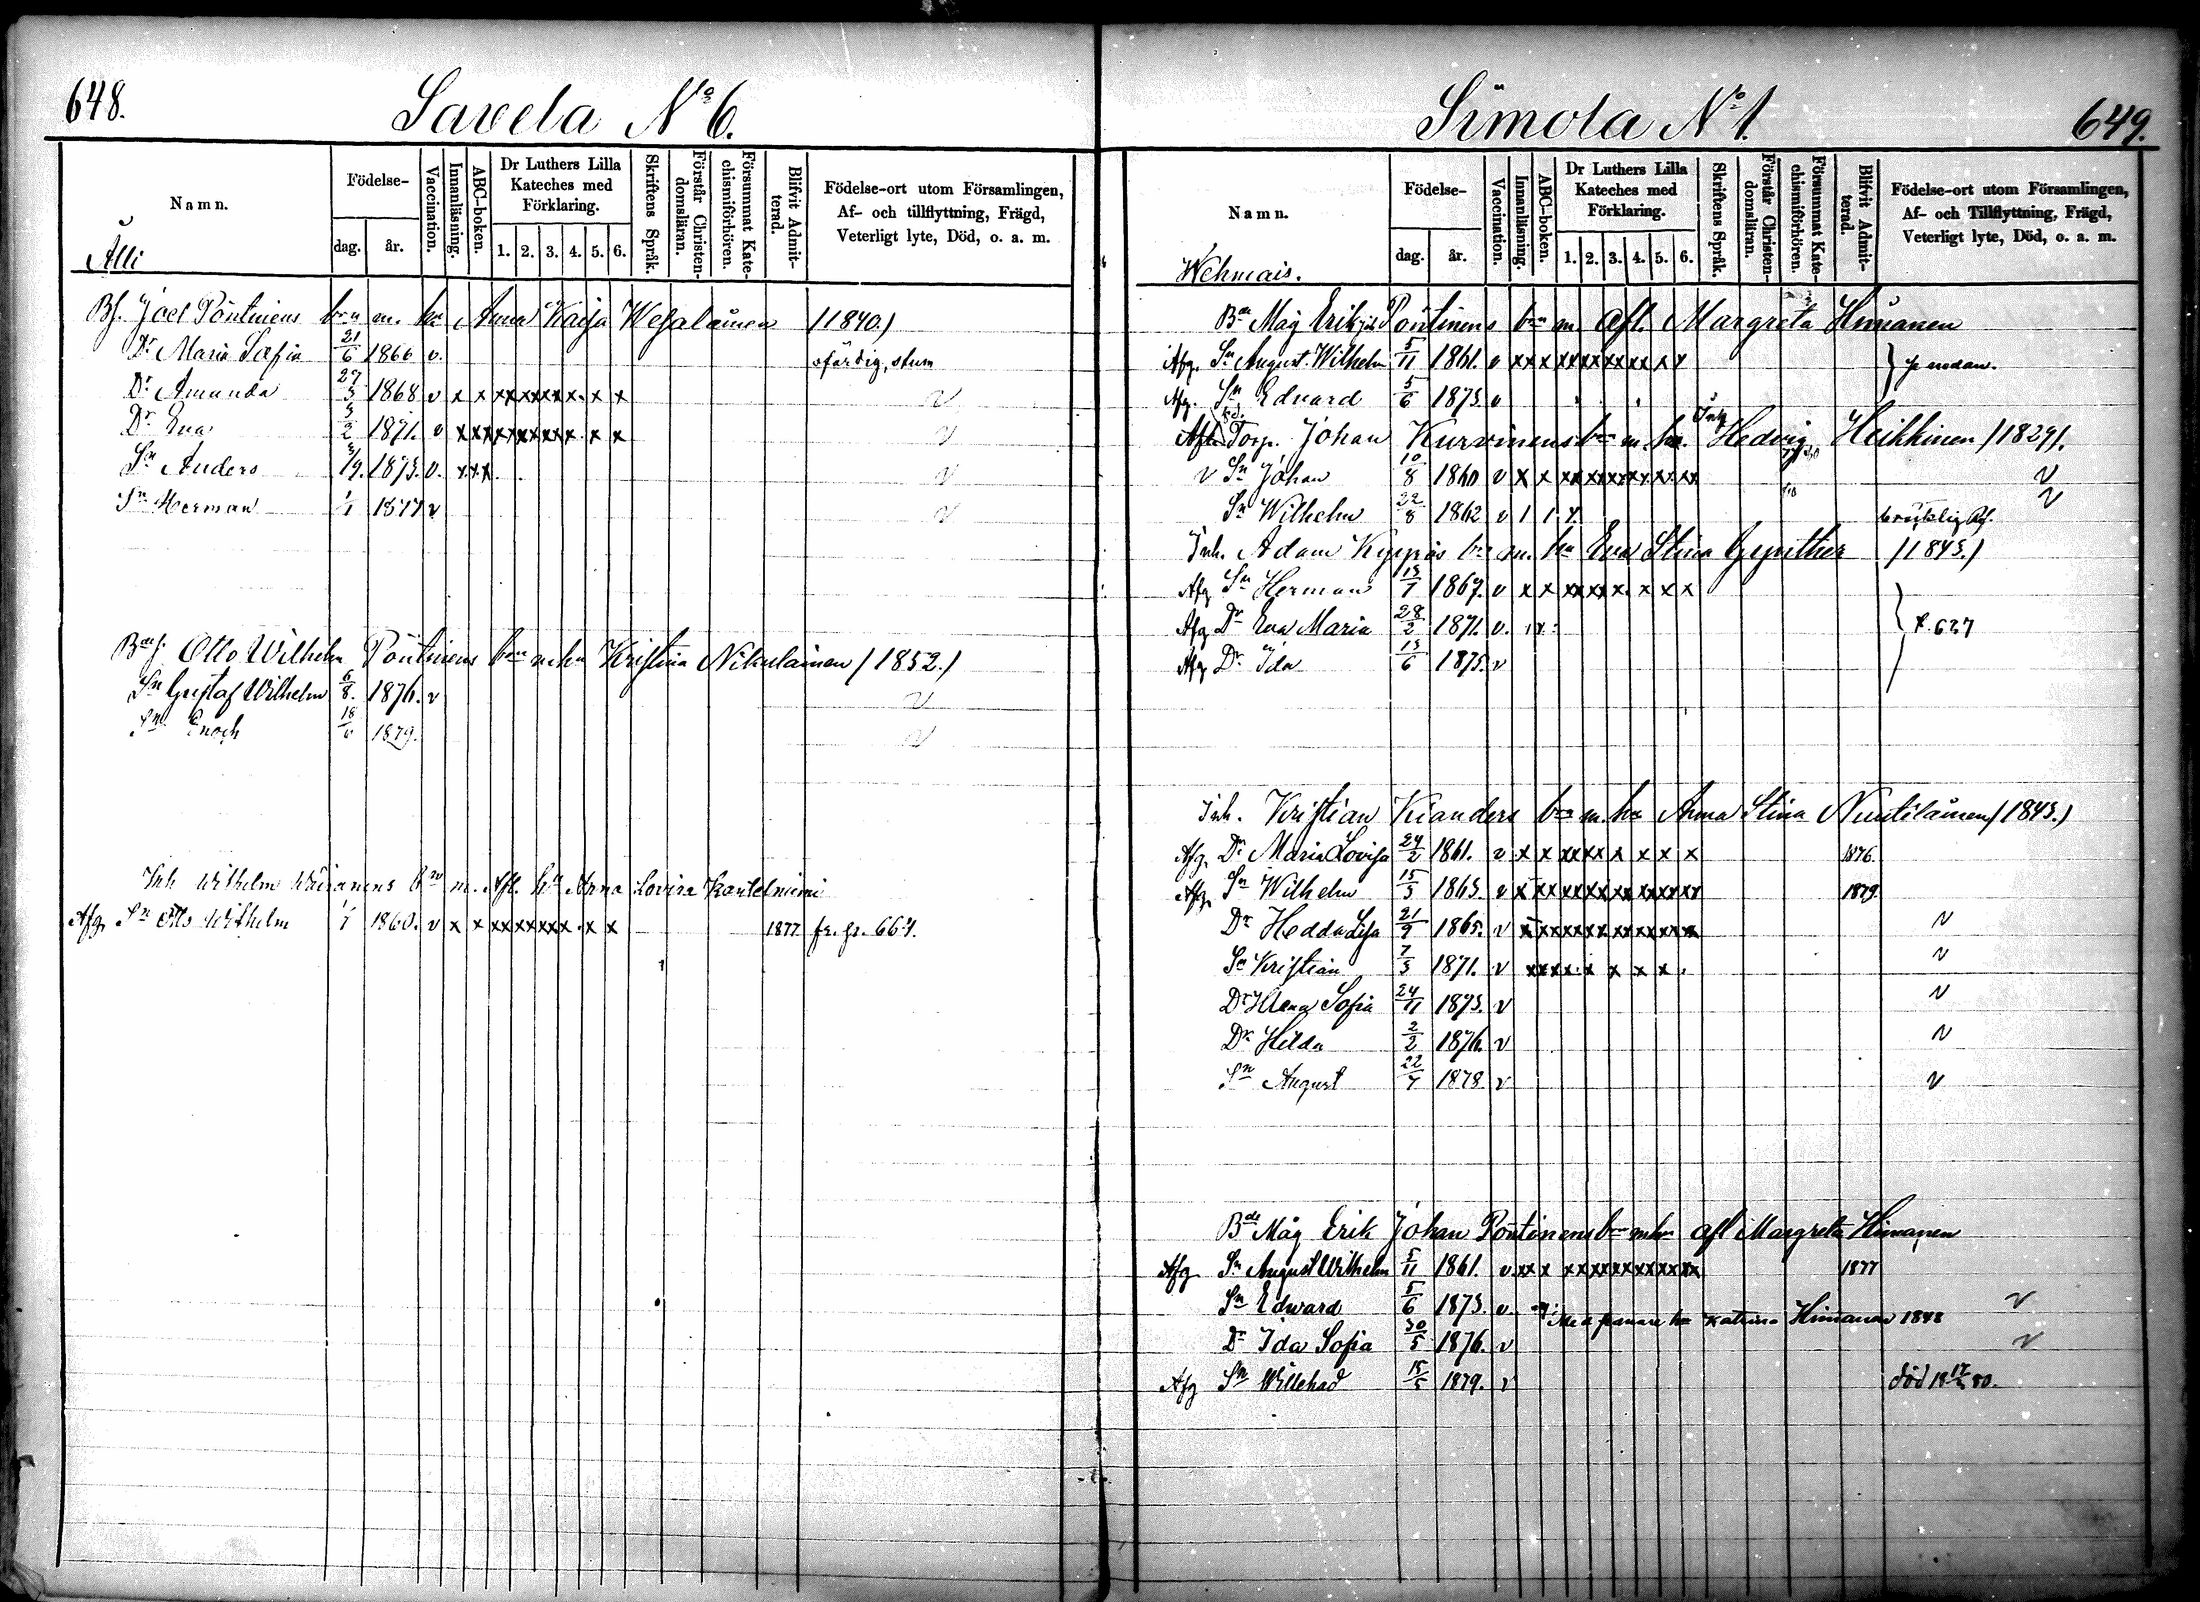 648.
Savela No 6.
Namn.
Födelse-
dag.
år.
Vaccination.
Innanläsning.
ABC-boken.
Dr Luthers Lilla Kateches med Förklaring.
1. 2. 3. 4. 5. 6.
Skriftens Språk.
Förstår Christendomsläran.
Försummat Katechismiförhören.
Blifvit Admitterad.
Födelse-ort utom Församlingen, Af- och tillflyttning, Frägd, Veterligt lyte, Död, o. a. m.
Alli
Joel Pöntinens brn m. hu Anna Kaisa Wesalainen (1840.)
Dr Maria Sofia 21/6 1866 v. ofärdig, stum
Dr Amanda 1868 v x x xxxxxxx x x v
Dr Eva 1871. v xxxxxxxxx x x v
Sn Anders 1873. v. xxx v
Sn Herman 1/1 1877 v v
Otto Wilhelm Pöntinens brn m hu Kristina Nikulainen (1852.)
Sn Gustaf Wilhelm 6/8. 1876. v v
Sn Enoch 18/6 1879. v
Inh Wilhelm brn m. Afl. hu Anna Lovisa Kantelminni
Afg. Sn Otto Wilhelm 1860. v x x xxxxxxx x x 1877 fr. 667.
Simola No 1.
649.
Namn.
Födelse-
dag.
år.
Vaccination.
Innanläsning.
ABC-boken.
Dr Luthers Lilla Kateches med Förklaring.
1. 2. 3. 4. 5. 6.
Skriftens Språk.
Förstår Christendomsläran.
Försummat Katechismiförhören.
Blifvit Admitterad.
Födelse-ort utom Församlingen, Af- och Tillflyttning, Frägd, Veterligt lyte, Död, o. a. m.
Wehmais.
Bde Måg Erik Joh Pöntinens brn m. Afl. Margreta Himanen
Afg. Sn August Wilhelm 5/11 1861. v xxx xxxxxxxx x x nedan.
Afg. Sn Edvard 5/6 1873. v
Torp. Johan Kurvinens brn m. hu. Hedvig Heikkinen (1829).
v Sn Johan 10/8 1860 v x x xxxxxxxxxx v
Sn Wilhelm 22/8 1862 v v
Inh. Adam brn m. hu Eva Stina (1845.)
Afg Sn Herman 1867. v x x xxxxx x x x
Afg Dr Eva Maria 28/2 1871. v. 627
Afg Dr Ida 1875. v
Inh. Kristian Kianders brn m. hu Anna Stina Nuutilainen (1843.)
Afg. Dr Maria Lovisa 24/2 1861. v x x xxxx x x x x 1876.
Afg. Sn Wilhelm 15/3 1863. v x xxxxxxxxxxxx 1879.
Dr Hedda Lisa 21/9 1865. v x xxxxxxxxxxxx v
Sn Kristian 7/3 1871. v xxxx x x x x v
Dr Sofia 24/11 1873. v v
Dr Hilda 2/2 1876. v v
Sn August 22/7 1878 v v
Bde Måg Erik Johan Pöntinens brn m hu afl Margreta Himanen
Afg Sn August Wilhelm 5/11 1861. v xx x xxxxxxxxxx 1877
Sn Edward 5/6 1873. v. v
Katrina Himanen 1848
Dr Ida Sofia 30/5 1876. v v
Afg Sn Willehad 15/5 1879. v död 18 80.